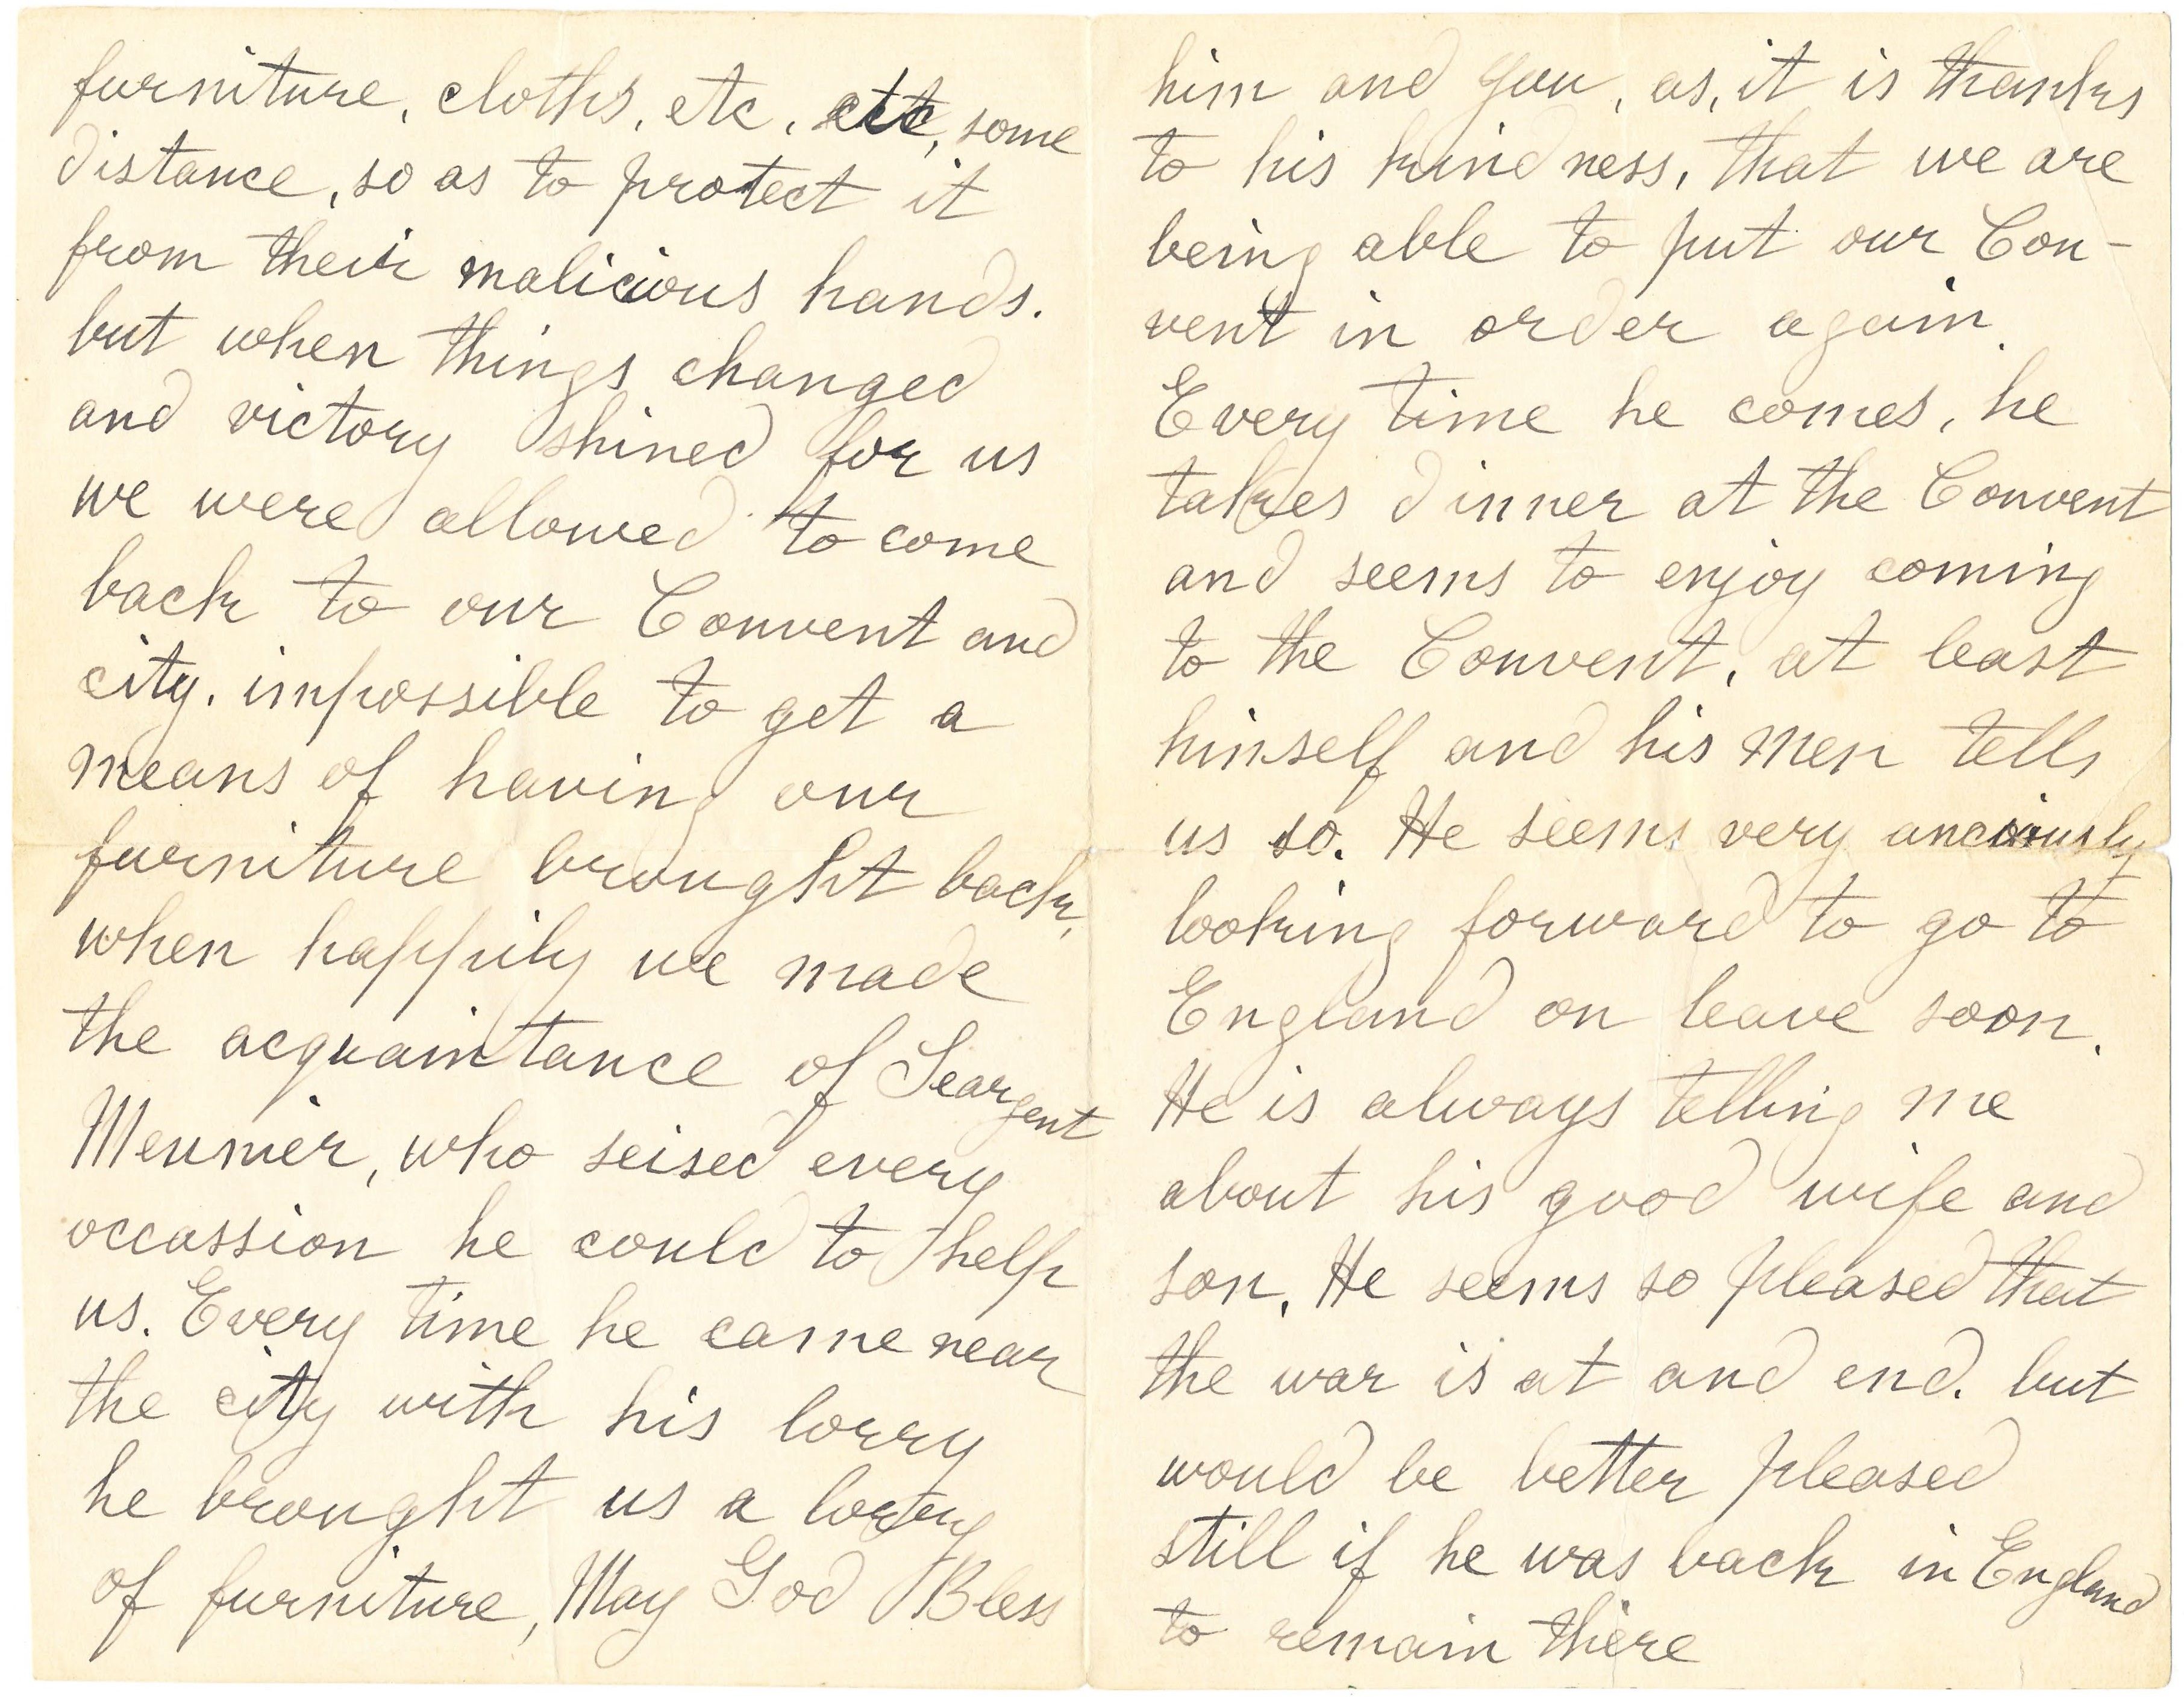 furniture, cloths, etc, etc, some
distance, so as to protect it
from their malicious hands.
but when things changed
and victory shined for us
we were allowed to come
back to our Convent and
city. impossible to get a
means of having our
furniture brought back,
when happily we made
the acquaintance of Seargent
Meunier, who seised every
occassion he could to help
us. Every time he came near
the city with his lorry
he brought us a lorry
of furniture, May God Bless
him and you, as, it is thanks
to his kindness, that we are
being able to put our Con-
vent in order again.
Every time he comes, he
takes dinner at the Convent
and seems to enjoy coming
to the Convent, at least
himself and his men tells
us so. He seems very anciously
looking forward to go to
England on leave soon.
He is always telling me
about his good wife and
son, He seems so pleased that
the war is at and end. but
would be better pleased
still if he was back in England
to remain there